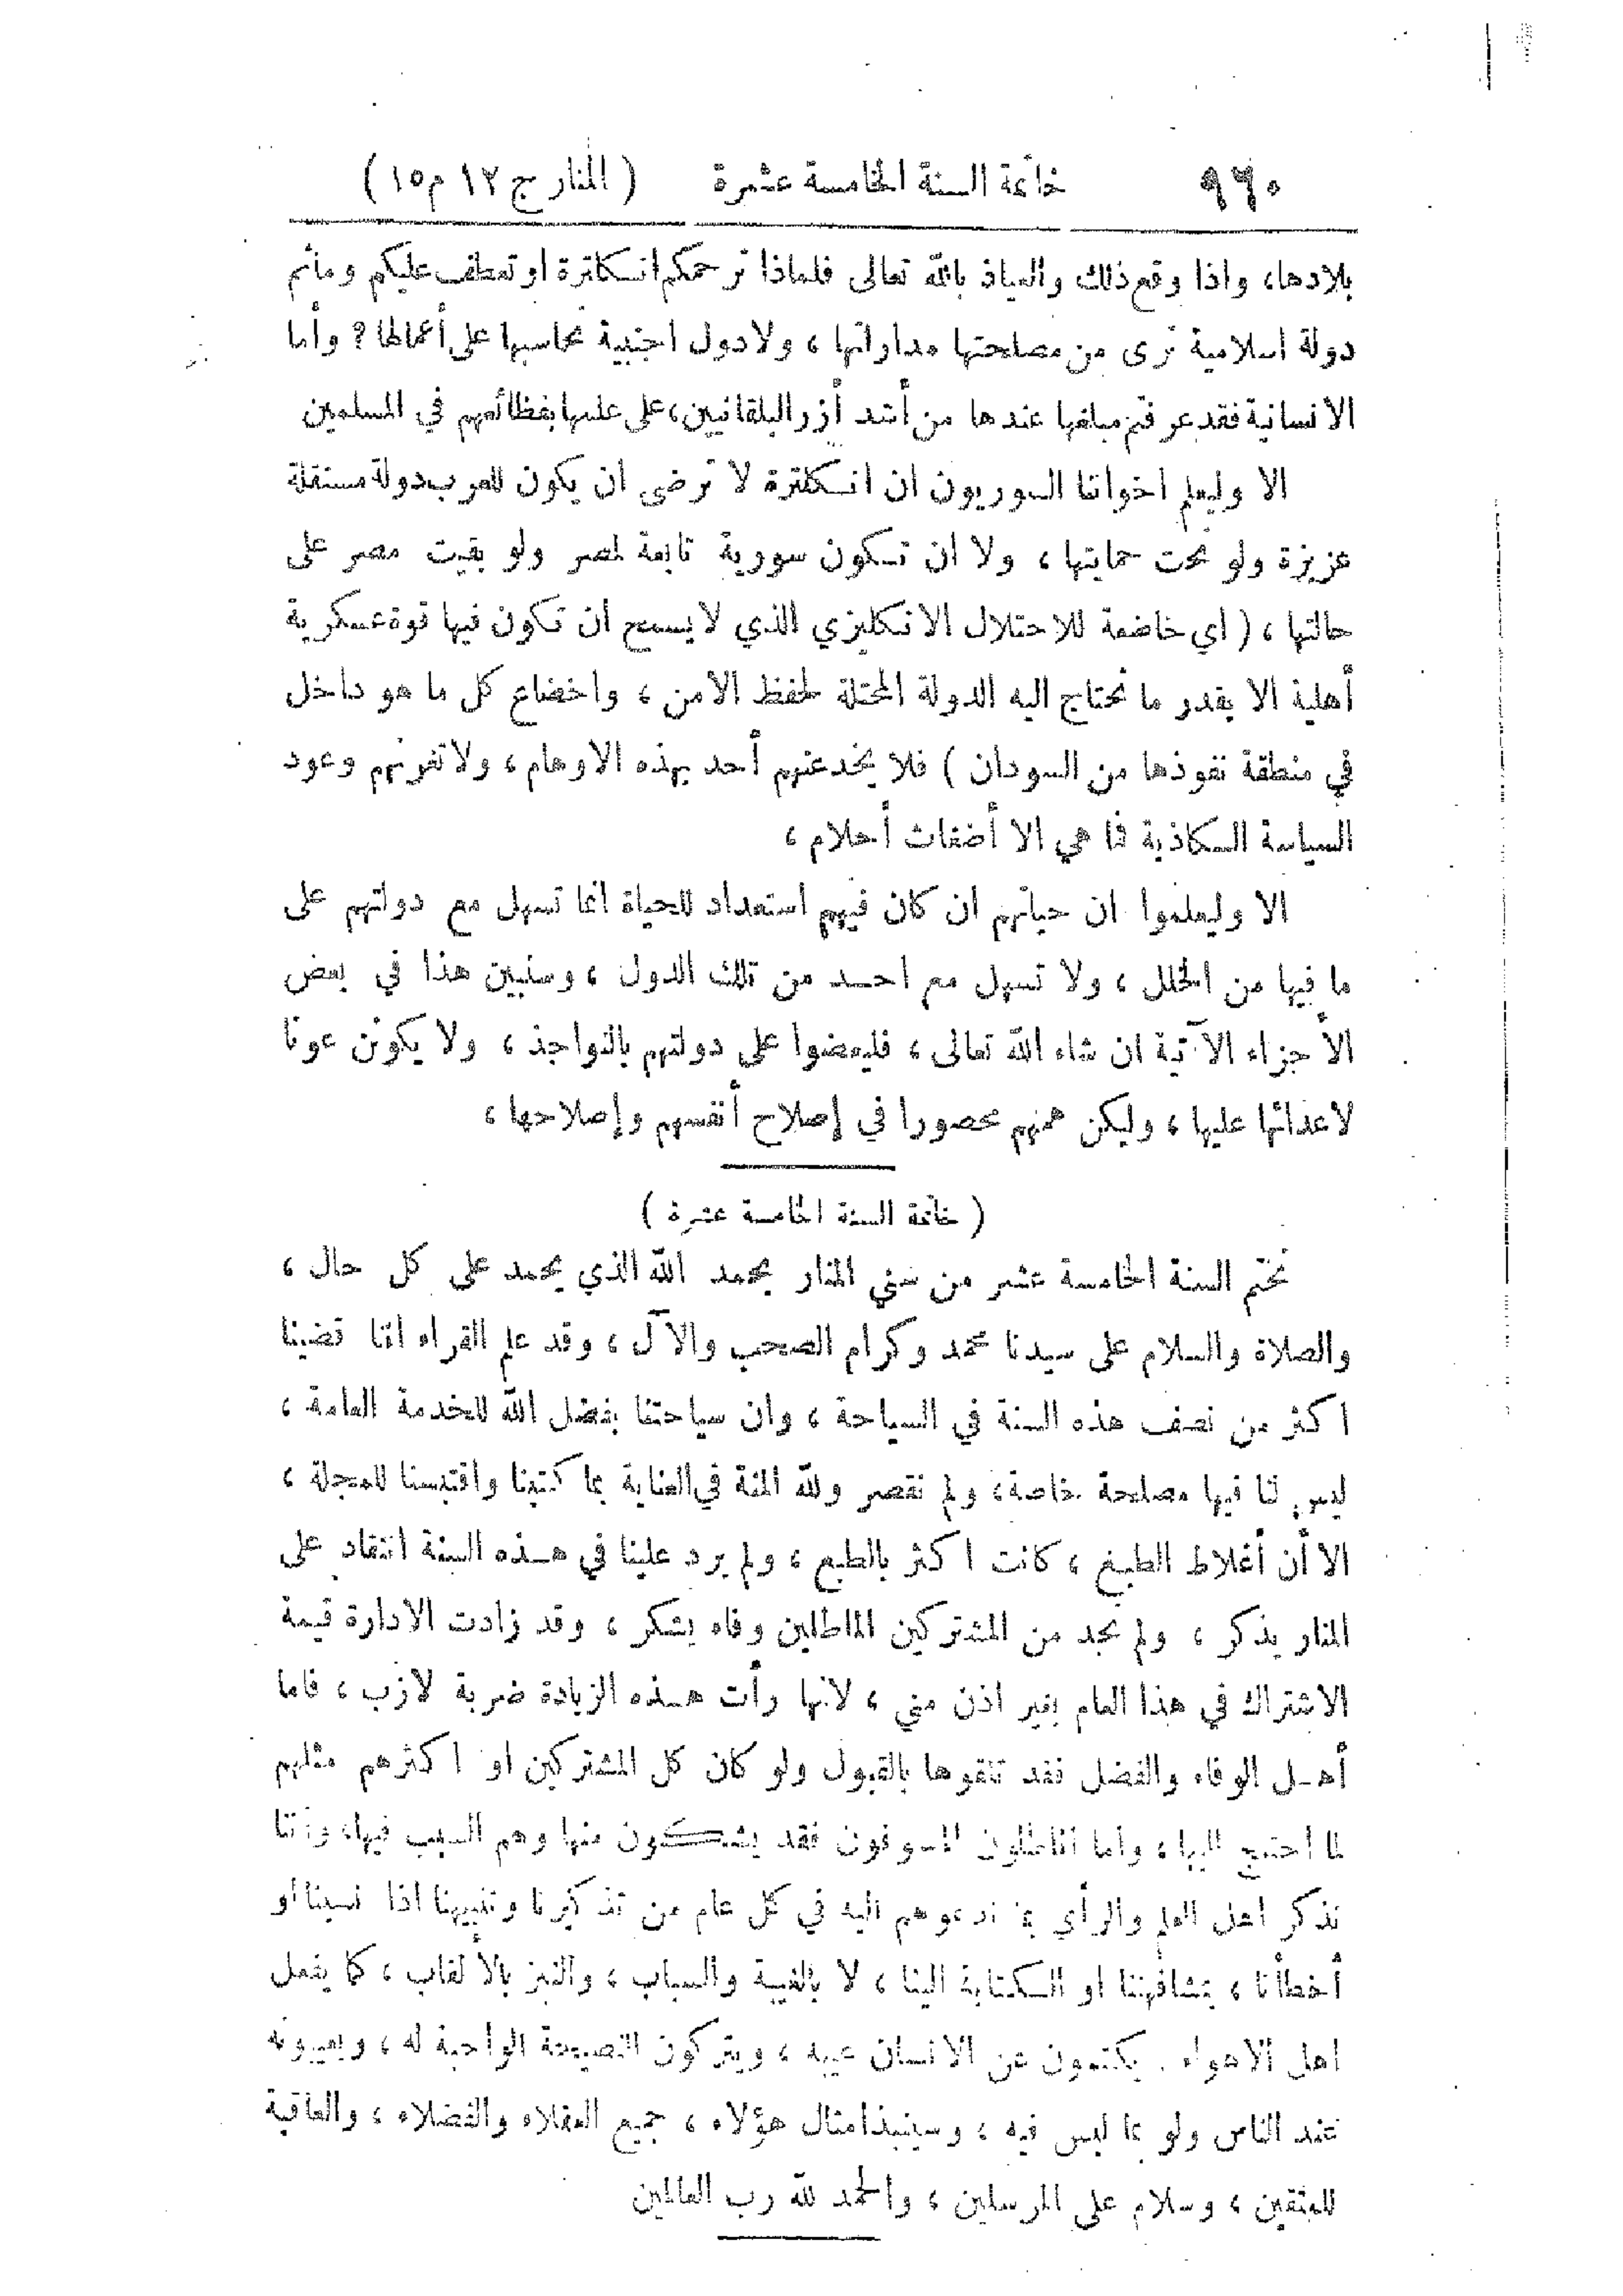 ٩٦٠ خاتمة السنة الخامسة عشرة (المنار ج ١٢ م ١٥)
بلادها، واذا وقع ذلك والعياذ بالله تعالى فلماذا ترحمكم انكلترة او تعطف عليكم وماثم
دولة اسلامية ترى من مصلحتها مداراتها ، ولا دول اجنبية تحاسبها على أعمالها ؟ وأما
الانسانية فقد عرفتم مبلغها عندها من أشد أزر البلقانيين، على علمها بفظائعهم في المسلمين
الا وليعلم اخواننا السوريون ان انكلترة لا ترضى ان يكون للعرب دولة مستقلة
عزيزة ولو تحت حمايتها ، ولا ان تكون سورية تابعة لمصر ولو بقيت مصر على
حالتها ، ( اي خاضعة للاحتلال الانكليزي الذي لا يسمح ان تكون فيها قوة عسكرية
أهلية الا بقدر ما تحتاج اليه الدولة المحتلة لحفظ الامن ، واخضاع كل ما هو داخل
في منطقة نفوذها من السودان ) فلا يخدعنهم أحد بهذه الاوهام ، ولا تغرنهم وعود
السياسة الكاذبة فما هي الا أضغاث أحلام ،
الا وليعلموا ان حياتهم ان كان فيهم استعداد للحياة انما تسهل مع دولتهم على
ما فيها من الخلل ، ولا تسهل مع احد من تلك الدول ، وسنبين هذا في بعض
الأجزاء الآتية ان شاء الله تعالى ، فليعضوا على دولتهم بالنواجذ ، ولا يكونن عونا
لاعدائها عليها ، وليكن همهم محصورا في إصلاح أنفسهم وإصلاحها ،
( خاتمة السنة الخامسة عشرة )
نختم السنة الخامسة عشر من سني المنار بحمد الله الذي يحمد على كل حال ،
والصلاة والسلام على سيدنا محمد وكرام الصحب والآل ، وقد علم القراء اننا قضينا
اكثر من نصف هذه السنة في السياحة ، وان سياحتنا بفضل الله للخدمة العامة ،
ليس لنا فيها مصلحة خاصة ، ولم نقصر ولله المنة في العناية بما كتبنا واقتبسنا للمجلة ،
الا أن أغلاط الطبع ، كانت اكثر بالطبع ، ولم يرد علينا في هذه السنة انتقاد على
المنار يذكر ، ولم نجد من المشتركين الماطلين وفاء يشكر ، وقد زادت الادارة قيمة
الاشتراك في هذا العام بغير اذن مني ، لانها رأت هذه الزيادة ضربة لازب ، فاما
أهل الوفاء والفضل فقد تلقوها بالقبول ولو كان كل المشتركين او اكثرهم مثلهم
لما احتيج اليها ، واما الماطلون المسوفون فقد يشكون منها وهم السبب فيها، واننا
نذكر اهل العلم والرأي بما ندعوهم اليه في كل عام من تذكيرنا وتنبيهنا اذا نسينا او
أخطأنا ، بمشافهتنا او الكتابة الينا ، لا بالغيبة والسباب ، والنبز بالألقاب ، كما يفعل
اهل الاهواء . يكتمون عن الانسان عيبه ، ويتركون النصيحة الواجبة له ، ويعيبونه
عند الناس ولو بما ليس فيه ، وسينبذ امثال هؤلاء ، جميع العقلاء والفضلاء ، والعاقبة
للمتقين ، وسلام على المرسلين ، والحمد لله رب العالمين